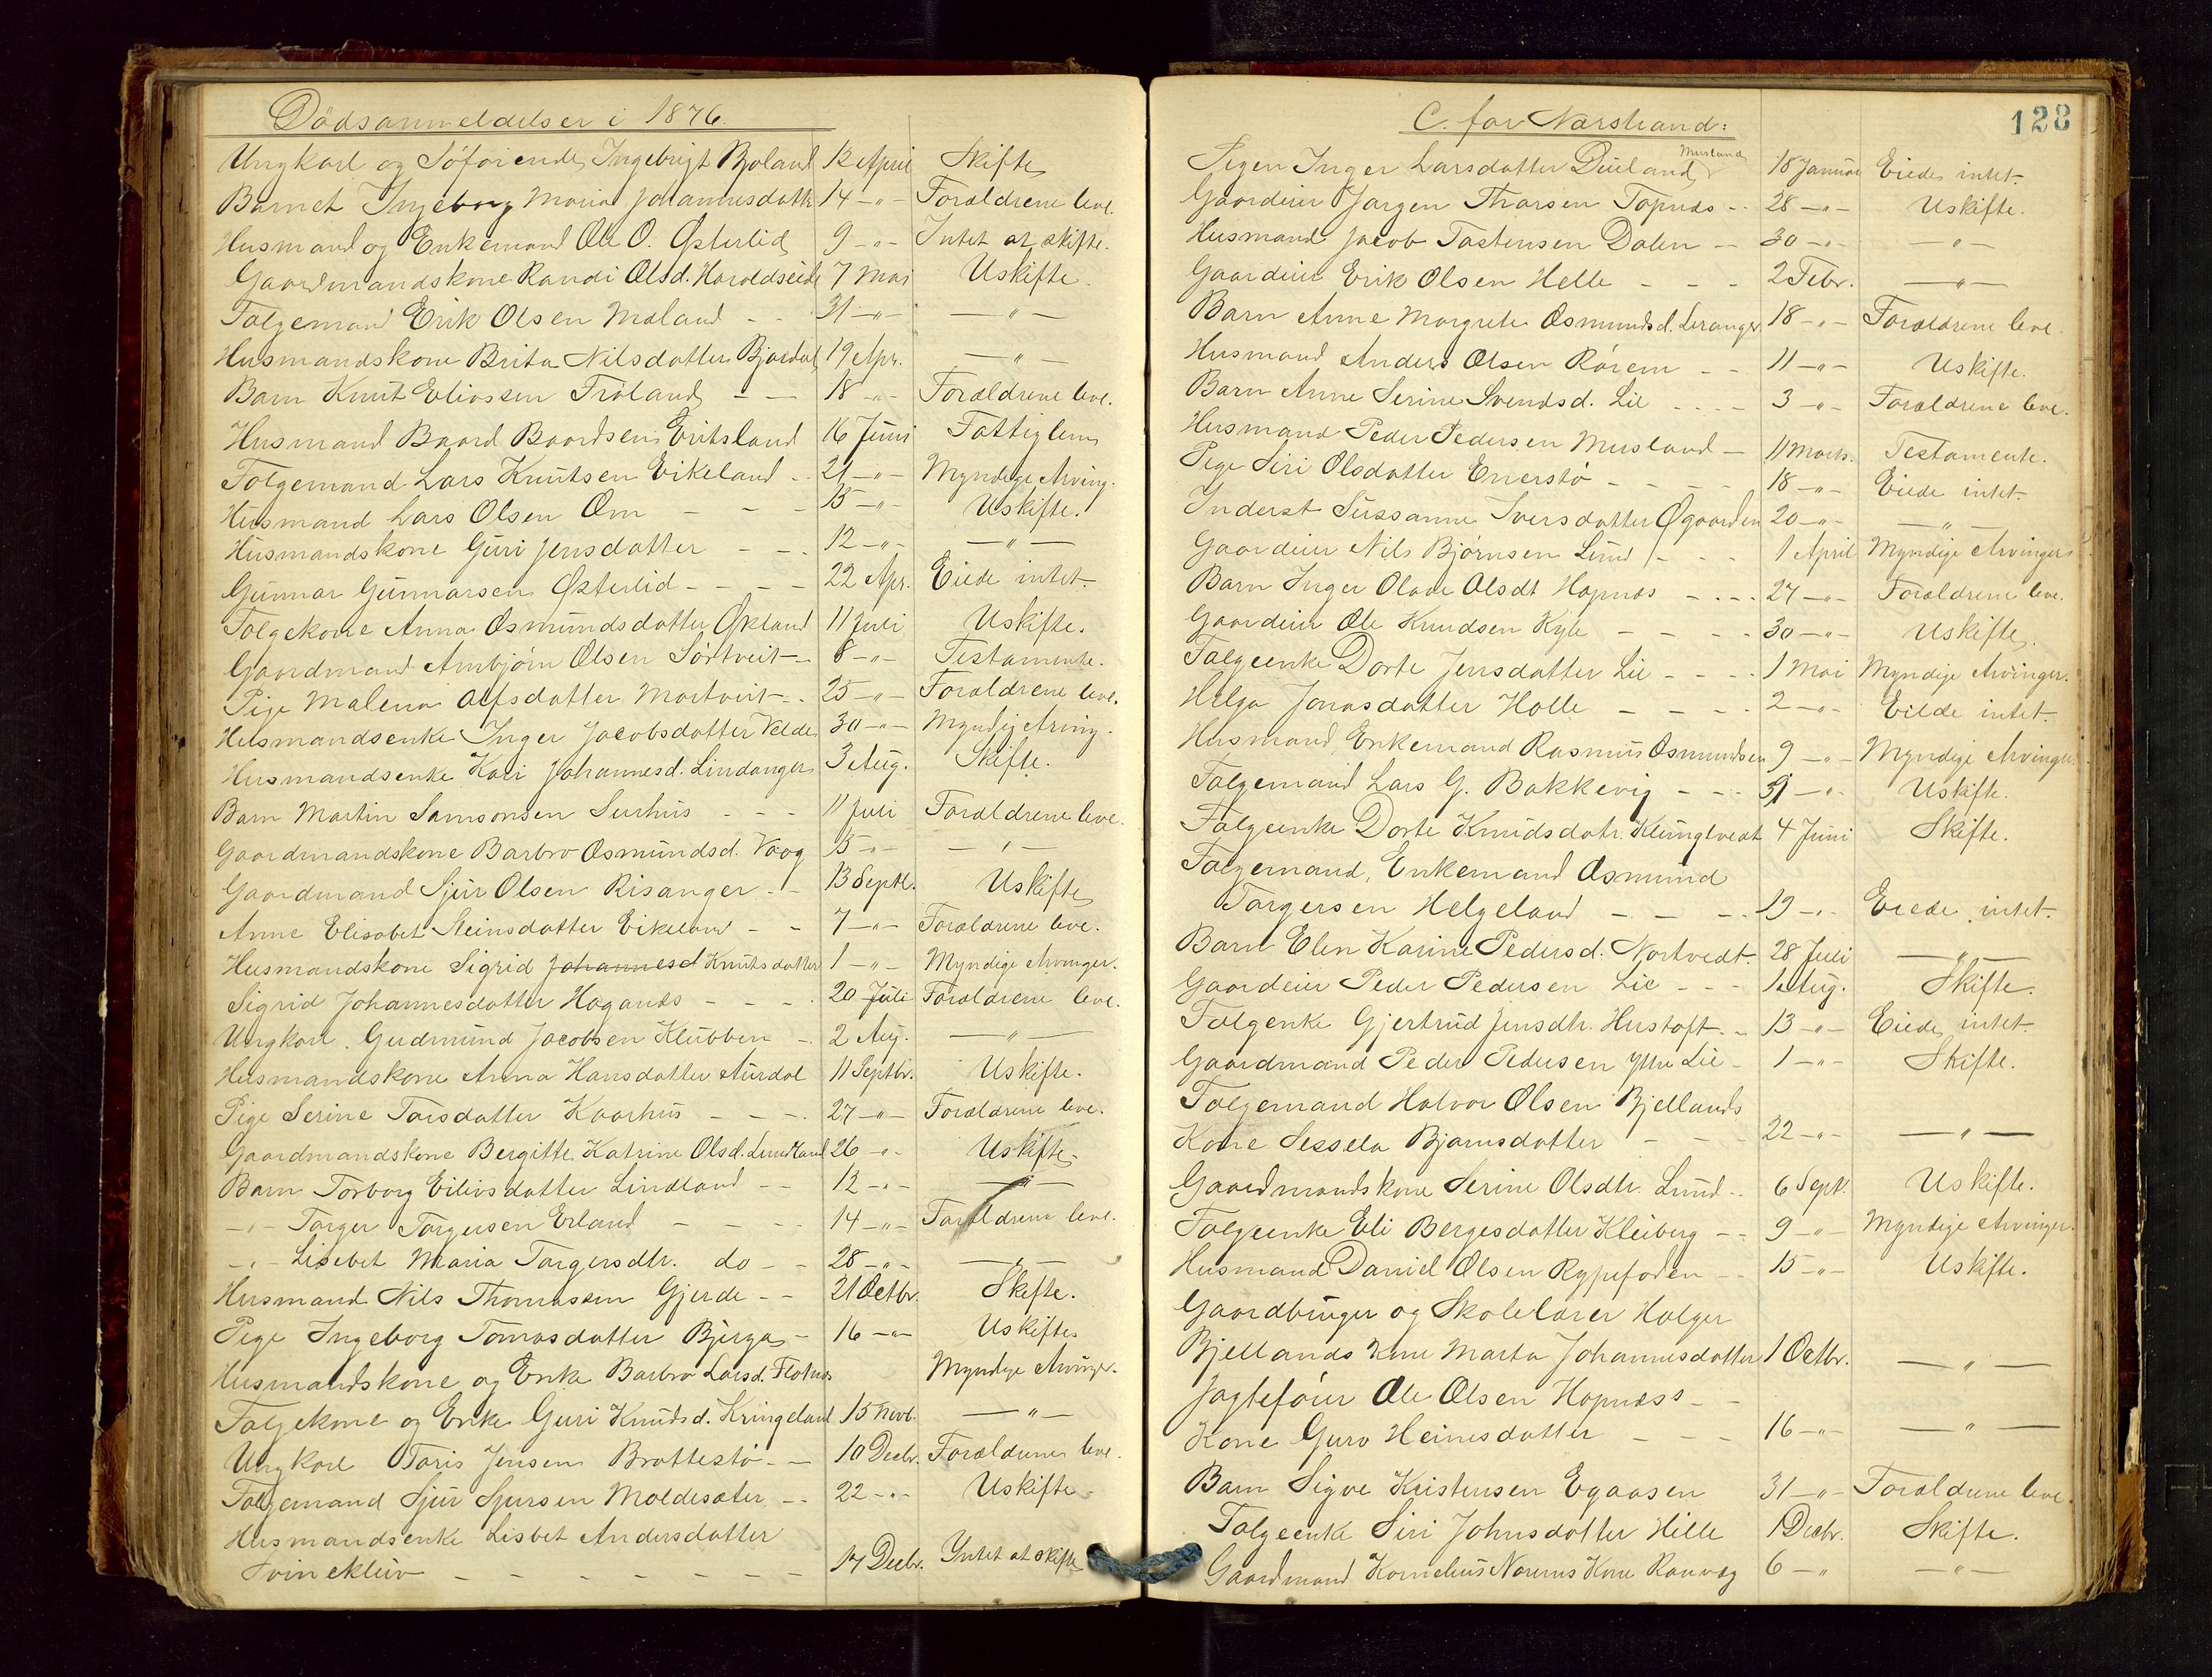 Dödsanmeldelser i 1876.
Ungkarl og Söfarende, Ingebrigt Bjoland 12 April Skifte
Barnet Ingeborg Maria Johannesdatte 14 -"- Forældrene leve.
Husmand og Enkemand Ole O. Østerlid 9 -"- Intet at skifte.
Gaardmandskone Randi Olsd. Haraldseide 7 Mai Uskifte.
Folgemand Erik Olsen Mæland - - 31 -"- -"-
Husmandskone Brita Nilsdatter Bjordal 19 Apr. -"-
Barn Knut Eliassen Tröland - - 18 -"- Forældrene leve.
Husmand Baard Baardsen Eritsland 16 Juni Fattiglem
Folgemand Lars Knutsen Eikeland - 21 -"- Myndige Arving.
Husmand Lars Olsen Øm - - - 15 -"- Uskifte.
Husmandskone Guri Jensdatter - - - 12 -"- -"-
Gunnar Gunnarsen Østerlid - - - - 22 Apr. Eiede intet.
Folgekone Anna Osmundsdatter Økland 11 Juli Uskifte.
Gaardmand Arnbjörn Olsen Sörtveit - 8 -"- Testamente.
Pige Malena Olfsdatter Mortveit - - 25 -"- Forældrene leve.
Husmandsenke Inger Jacobsdatter Velde 30 -"- Myndig Arving.
Husmandsenke Kari Johannesd. Lindanger 3 Aug. Skifte.
Barn Martin Samsonsen Surhus - - - 11 Juli Forældrene leve.
Gaardmandskone Barbro Osmundsd. Vaag 15 -"- -"-
Gaardmand Sjur Olsen Risanger - - 13 Septb. Uskifte
Anne Elisabet Steinsdatter Eikeland - - 7 -"- Forældrene leve.
Husmandskone Sigrid Johannesd Knutsdatter 1 -"- Myndige Arvinger.
Sigrid Johannesdatter Haganæs - - - 20 Juli Forældrene leve.
Ungkarl. Gudmund Jacobsen Klubben - 2 Aug. -"-
Husmandskone Anna Hansdatter Aurdal 11 Septbr. Uskifte.
Pige Serine Tarsdatter Kaarhus - - - 27 -"- Forældrene leve.
Gaardmandskone Bergitte Katrine Olsd. 26 -"- Uskifte
Barn Torborg Eiliasdatter Lindland - - 12 -"- -"-
-"- Torger Torgersen Erland - - - - 14 -"- Forældrene leve.
-"- Lisebet Maria Torgersdtr. do - - 28 -"- -"-
Husmand Nils Thomassen Gjerde - - 21 Octbr. Skifte.
Pige Ingeborg Tomasdatter Bjerga - 16 -"- Uskifte
Husmandskone og Enke Barbro Larsd. Flotnes Myndige Arvinger.
Folgekone og Enke Guri Knudsd. Kringeland 15 Novb. -"-
Ungkarl Taris Jensen Brattestö - - 10 Decbr. Forældrene leve.
Folgemand Sjur Sjursen Moldesæter - - 22 -"- Uskifte
Husmandsenke Lisbet Andersdatter
Svinekleiv - - - - - - - 17 Decbr. Intet at skifte
C. for Nærstrand:
128
Musland
Inger Larsdatter 18 Januar Eiede intet.
Gaardeier Jørgen Thorsen Topnæs - - 28 -"- Uskifte.
Husmand Jacob Tostensen Dalen - - 30 -"- -"-
Gaardeier Erik Olsen Helle - - - 2 Febr. -"-
Barn Anne Margrete Osmundsd. Leranger 18 -"- Forældrene leve.
Husmand Anders Olsen Rörem - - 11 -"- Uskifte.
Barn Anne Serine Svendsd. Lie - - - - 3 -"- Forældrene leve.
Husmand Peder Pedersen Musland - 11 Marts. Testamente.
Pige Siri Olsdatter Enerstö - - - - 18 -"- Eiede intet.
Inderst Sussanne Iversdatter Øgaarden 20 -"- -"-
Gaardeier Nils Bjørnsen Lund - - - 1 April Myndige Arvinger
Barn Inger Olave Olsdt Hopnæs - - - - 27 -"- Forældrene leve.
Gaardeier Ole Knudsen Kyle - - - - 30 -"- Uskifte.
Folgeenke Dorte Jensdatter Lie - - - - 1 Mai Myndige Arvinger.
Helga Jonasdatter Holle - - - - 2 -"- Eiede intet.
Husmand, Enkemand Rasmus Osmundsen 9 -"- Myndige Arvinger.
Folgemand Lars G. Bakkevig - - - 31 -"- Uskifte.
Folgeenke Dorte Knudsdatr. Klungtvedt 4 Juni Skifte.
Folgemand, Enkemand Osmund
Torgersen Helgeland - - - - 19 -"- Eiede intet.
Barn Elen Karine Pedersd. Nortvedt. 28 Juli -"-
Gaardeier Peder Pedersen Lie - - - 1 Aug. Skifte.
Folgenke Gjertrud Jensdtr. Hustoft - - 13 -"- Eiede intet.
Gaardmand Peder Pedersen Ytre Lie - 1 -"- Skifte.
Folgemand Halvor Olsen Bjellands
Kone Sessela Bjarnsdatter - - - 22 -"- -"-
Gaardmandskone Serine Olsdtr. Lund - - 6 Sept. Uskifte.
Folgeenke Eli Bergesdatter Kleiberg - - 9 -"- Myndige Arvinger.
Husmand Daniel Olsen Rypefoden - - 15 -"- Uskifte.
Gaardbruger og Skolelærer Holger
Bjellands Kone Marta Johannesdatter 1 Octbr. -"-
Jagteförer Ole Olsen Hopnæss - -
Kone Guro Heinesdatter - - - 16 -"- -"-
Barn Sigve Kristensen Egaasen 31 -"- Forældrene leve.
Folgeenke Siri Johnsdatter Hille 1 Decbr. Skifte.
Gaardmand Kornelius Kone Ranvæg 6 -"- -"-